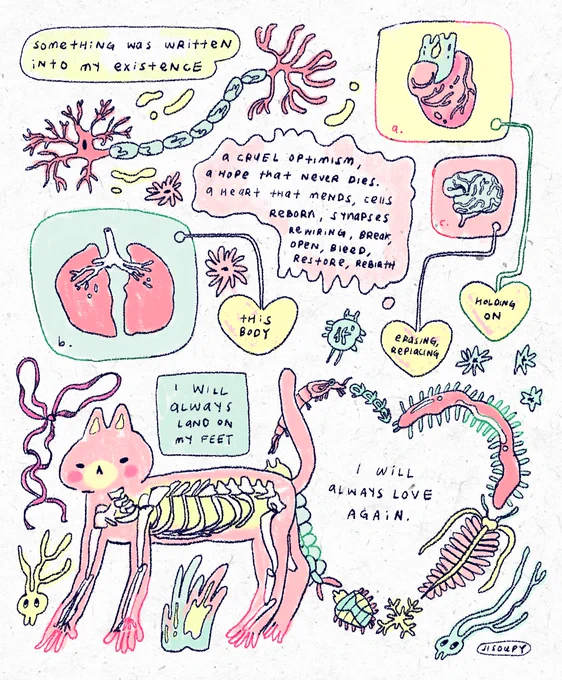 SOMETHING WAS WRITTEN
INTO MY EXISTENCE
a.
a CRUEL OPTIMISM,
a HOPE THAT NEVER DIES.
a HEART THAT MENDS, CELLS
REBORN, SYNAPSES
REWIRING, BREAK,
OPEN, BLEED,
RESTORE, REBIRTH
c.
b.
THIS
BODY
ERASING,
REPLACING
HOLDING
ON
I WILL
ALWAYS
LAND ON
MY FEET
I WILL
ALWAYS LOVE
AGAIN.
JISOUPY